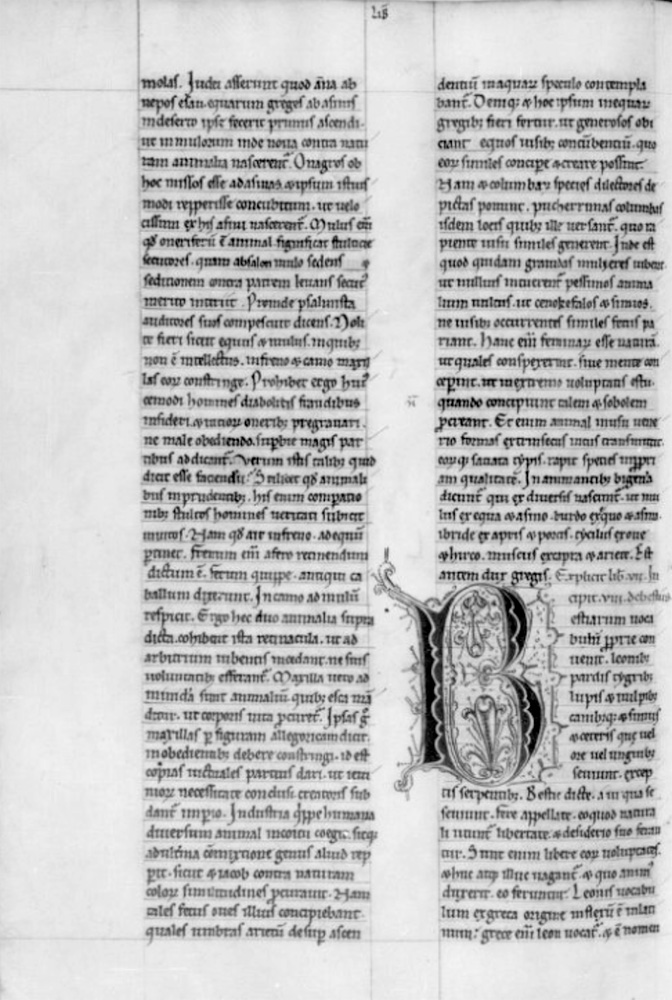 LIB
molas. Iudei asserunt quod ana ab
nepos esau. equarum greges ab asinis
in deserto ipse fecerit primus ascendi.
ut in mulorum inde noua contra natu
ram animalia nascerent̄. Onagros ob
hoc missos esse ad asinas. & ipsum istius
modi repperisse concubitum. ut uelo
cissimi ex his asini nascerent̄. Mulus eni
qđ oneriferū ē animal. significat stulticie
sectatores. quam absalon mulo sedens &
seditionem contra patrem leuans secut᷒
merito interiit. Proinde psalmista
auditores suos compescuit dicens. Noli
te fieri sicut equus & mulus. in quibꝫ
non ē intellectus. in freno & camo maxil
las eoꝝ constringe. Prohibet ergo hui᷒
cemodi homines diabolicis fraudibus
insideri. & uicioꝝ oneribꝫ pregrauari.
ne male obediendo. supbie magis par
tibus addicant̄. Verum istis talibꝫ quid
dicit esse faciendū? Scilicet qđ animali
bus inprudentibꝫ. his enim comparatio
nibꝫ stultos homines ueritati subicit
inuitos. Nam qđ ait in freno. ad equū
ptinet. Frenum eni a fero retinendum
dictum ē. ferum quippe. antiqui ca
ballum dixerunt. In camo ad mulū
respicit. Ergo hec duo animalia supra
dicta. cohibent ista retinacula. ut ad
arbitrium iubentis incedant. ne suis
uoluntatibꝫ efferant̄. Maxilla uero ad
mandā sunt animaliū. quibꝫ esca mā
ditur. ut corporis uita pcuret̄. Ipsas g̊
maxillas p figuram allegoricam dicit
inobedientibꝫ debere constringi. id est
copias uictuales parcius dari. ut ieiu
nioꝝ necessitate conclusi. creatoris sub
dant̄ imperio. Industria q̊ppe humana
diuersum animal in coitu coegit. sicqꝫ
adulterina cōmixtione genus aliud rep
perit. sicut & iacob contra naturam
coloꝝ similitudines pcurauit. Nam
tales fetus oues illius concipiebant.
quales umbras arietū desup ascen
dentiū in aquaꝝ speculo contempla
bant̄. Deniqꝫ & hoc ipsum in equaꝝ
gregibꝫ fieri fertur. ut generosos obi
ciant equos uisibꝫ concūbentiū. quo
eoꝝ similes concipe & creare possint.
Nam & columbaꝝ species dilectores de
pictas ponunt. pucherrimas columbas
isdem locis quibꝫ ille uersant̄. quo ra
piente uisu similes generent. Inde est
quod quidam grauidas mulieres iubent
ut nullius intuerent̄ pessimos anima
lium uultus. ut cenokefalos & simios.
ne uisibꝫ occurrentes similes fetus pa
riant. Hanc eni feminaꝝ esse naturā.
ut quales conspexerint. siue mente con
ceperint. ut in extremo uoluptatis estu.
quando concipiunt talem & sobolem
pcreant. Et enim animal in usu uene
rio formas extrinsecus intus transmittit.
eoꝝqꝫ satiata typis. rapit species in ppri
am qualitatē. In animantibꝫ bigena
dicunt̄ qui ex diuersis nascunt̄. ut mu
lus ex equa & asino. burdo ex equo & asina.
ibride ex apris & porcis. tytirus ex oue
& hirco. musmus ex capra & ariete. Est
autem dux gregis. Explicit lib. vii. In
cipit. viii. de bestiis
B
estiarum uoca
bulū pprie con
uenit. leonibꝫ
pardis tygribꝫ
lupis & uulpibꝫ
canibꝫqꝫ & simiis
& ceteris que uel
ore uel unguibꝫ
seuiunt. excep
tis serpentibꝫ. Bestie dicte. a ui qua se
seuiunt. Fere appellate. eo quod natura
li utunt̄ libertate. & desiderio suo feran
tur. Sunt enim libere eoꝝ uoluptates.
& huc atqꝫ illuc uagant̄. & quo anim᷒
duxerit. eo feruntur. Leonis uocabu
lum ex greca origine inflexū ē in lati
num. grece eni leon uocat̄. & ē nomen